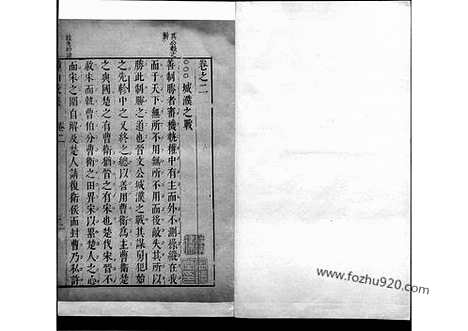 卷之二
○○○城濮之戰
善制勝者審機執權中有主而外不測操縱在我
而于天下無所不用無所不用而後敵失其所以
勝此制勝之道也晉文公城濮之戰其謀屢犯始
之先軫中之又終之總以善用曹衛爲主曹衛楚
之與國楚之有曹衛猶晉之有宋也楚伐宋晉不
救宋而執曹伯分曹衛之田畀宋以累楚人之心
而宋之圍自解及楚人請復衛侯而封曹乃私許
卷二
www.fozhu920.com